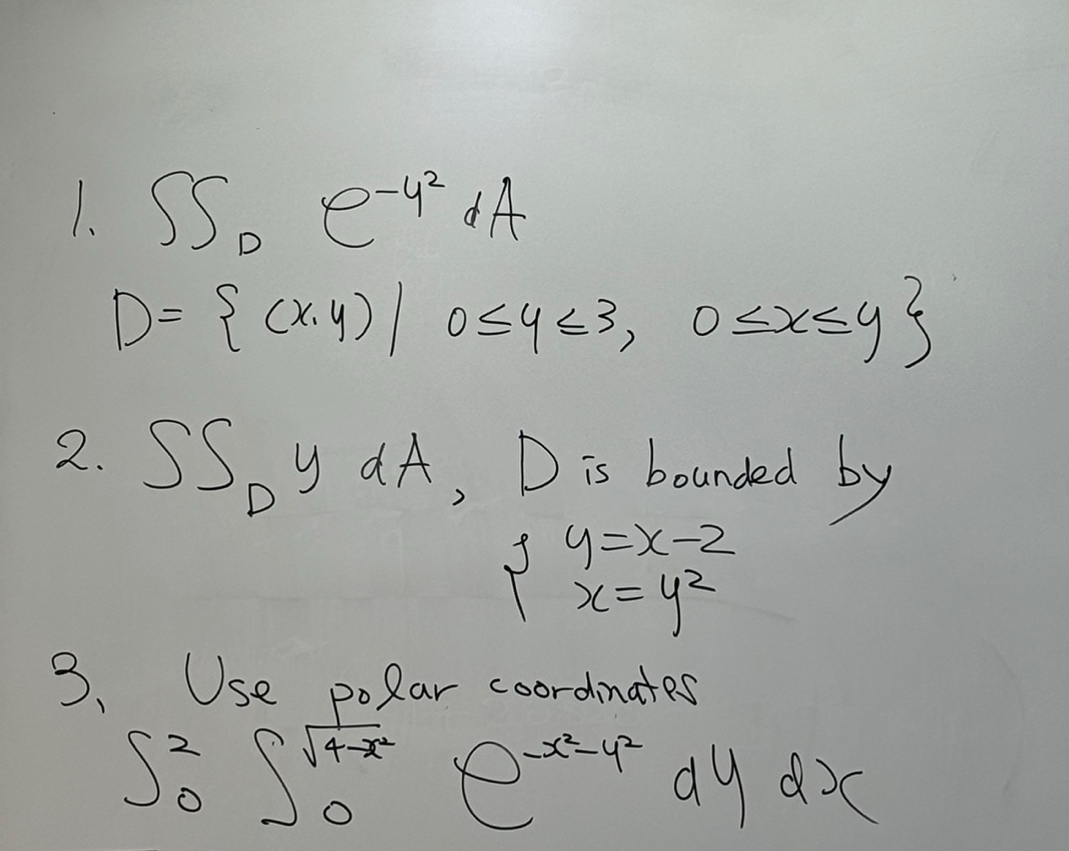 1. ∫∫_D e^{-y²} dA
D = { (x, y) | 0 ≤ y ≤ 3, 0 ≤ x ≤ y }
2. ∫∫_D y dA, D is bounded by
{ y = x - 2
x = y²
3. Use polar coordinates
∫_0^2 ∫_0^{√(4-x²)} e^{-x²-y²} dy dx